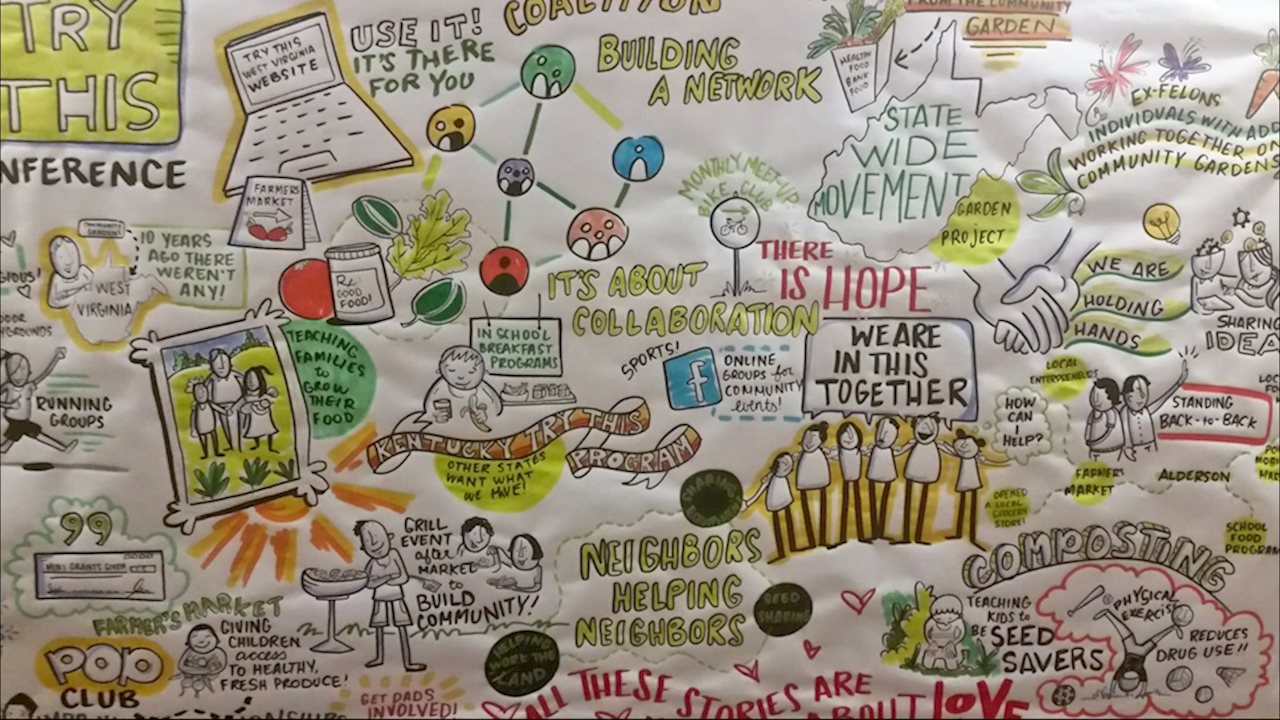 TRY
THIS
NFERENCE
TRY THIS
WEST VIRGINIA
WEBSITE
USE IT!
IT'S THERE
FOR YOU
COALITION
BUILDING
A NETWORK
HEALTHY
FOOD
BANK
FOOD
FROM THE COMMUNITY
GARDEN
STATE
WIDE
MOVEMENT
GARDEN
PROJECT
EX-FELONS
INDIVIDUALS WITH ADD
WORKING TOGETHER ON
COMMUNITY GARDENS
FARMERS
MARKET
MONTHLY MEET-UP
BIKE CLUB
COMMUNITY
GARDENS
10 YEARS
AGO THERE
WEREN'T
ANY!
WEST
VIRGINIA
GIOUS!
Rx:
GOOD
FOOD!
IT'S ABOUT
COLLABORATION
THERE
IS HOPE
WE ARE
HOLDING
HANDS
SHARING
IDEA
RUNNING
GROUPS
TEACHING
FAMILIES
to
GROW
THEIR
FOOD
IN SCHOOL
BREAKFAST
PROGRAMS
SPORTS!
f
ONLINE
GROUPS for
COMMUNITY
events!
WE ARE
IN THIS
TOGETHER
HOW
CAN
I
HELP?
LOCAL
ENTREPRENEURS
STANDING
BACK-to-BACK
KENTUCKY TRY THIS
PROGRAM
OTHER STATES
WANT WHAT
WE HAVE!
FARMERS
MARKET
ALDERSON
OPENED
A LOCAL
GROCERY
STORE!
SCHOOL
FOOD
PROGRAM
99
MINI GRANTS GIVEN
GRILL
EVENT
after
MARKET
to
BUILD
COMMUNITY!
NEIGHBORS
HELPING
NEIGHBORS
SEED
SHARING
HELPING
WORK THE
LAND
COMPOSTING
TEACHING
KIDS to
BE SEED
SAVERS
PHYSICAL
EXERCISE
REDUCES
DRUG USE!!
FARMER'S MARKET
POP
CLUB
GIVING
CHILDREN
access
TO HEALTHY,
FRESH PRODUCE!
GET DADS
INVOLVED!
ALL THESE STORIES ARE
ABOUT LOVE